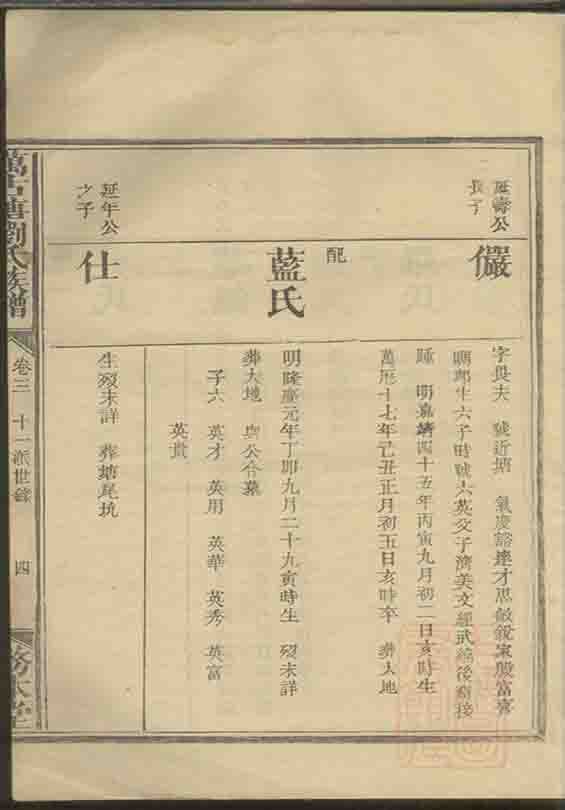 延壽公
長子
儼
字與夫 號近塘 氣度豁達才思敏銳家殷富齊
聯鄉生六子時號六英父子濟美文經武緯後裔接
踵 明嘉靖四十五年丙寅九月初二日亥時生
萬曆十七年己丑正月初五日亥時卒 葬大地
配
藍氏
明隆慶元年丁卯九月二十九寅時生 歿未詳
葬大地 與公合墓
子六 英才 英用 英華 英秀 英富
英貴
延年公
之子
仕
生歿未詳 葬塘尾坑
劉氏族譜
卷三 十一派世錄
四
務本堂